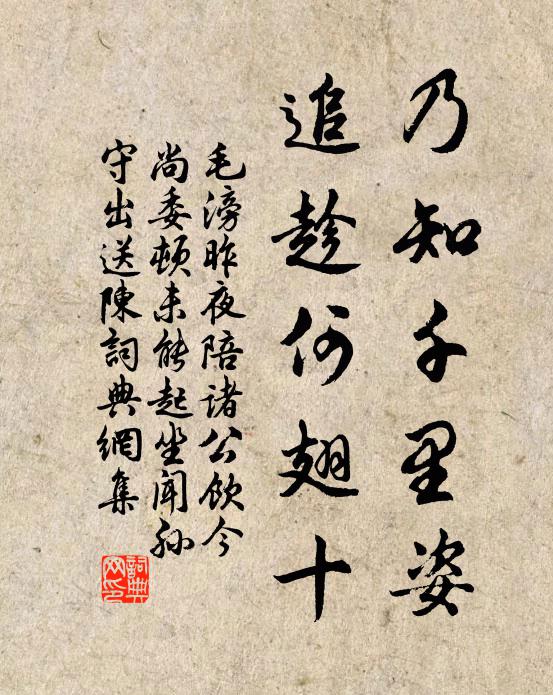 乃知千里姿
追趁何翅十
毛滂昨夜陪諸公飲今
尚委頓未能起坐聞孙
守出送陳詞典網集
詞典网印